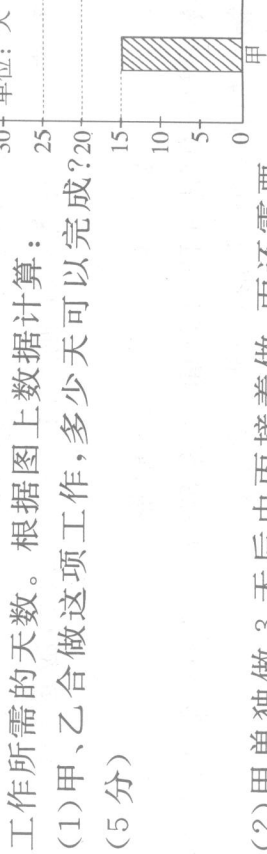 工作所需的天数。根据图上数据计算：
(1)甲、乙合做这项工作，多少天可以完成？
(5 分)
(2)甲单独做 3 天后由丙接着做，丙还需要
单位：天
30
25
20
15
10
5
0
甲